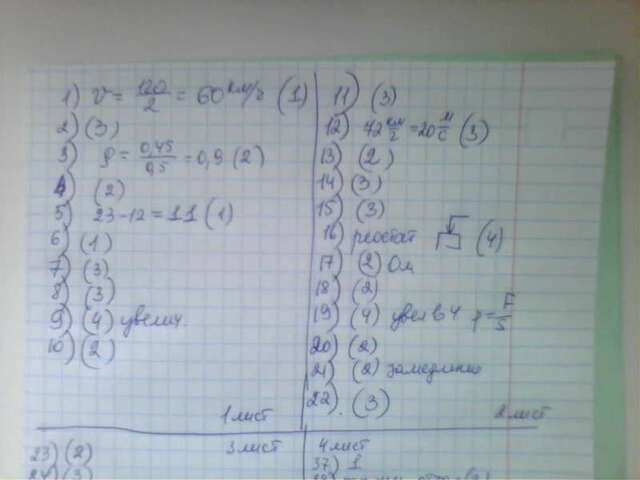 1) v = 120/2 = 60 км/ч (1)
2) (3)
3) ρ = 0,45/0,5 = 0,9 (2)
4) (2)
5) 23-12 = 11 (1)
6) (1)
7) (3)
8) (3)
9) (4) увелич.
10) (2)
1 лист
11) (3)
12) 72 км/г = 20 м/с (3)
13) (2)
14) (3)
15) (3)
16) реостат (4)
17) (2) Ом
18) (2)
19) (4) увел в 4 p = F/S
20) (2)
21) (2) замедлино
22). (3)
2 лист
23) (2)
3 лист
24) (3)
4 лист
37) 1